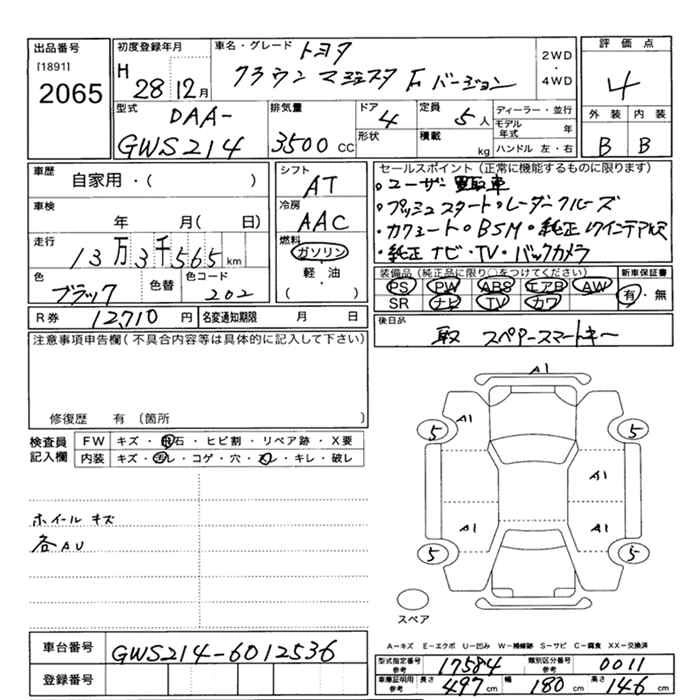 出品番号
[1891]
2065
初度登録年月
H 28年 12月
車名・グレード トヨタ
クラウン マジェスタ Fバージョン
2WD
・
4WD
評価点
4
外装 内装
B B
型式 DAA-
GWS214
排気量
3500 CC
ドア 4
形状
定員 5人
積載 kg
ディーラー・並行
モデル年式 年
ハンドル 左・右
車歴 自家用・( )
車検 年 月( 日)
走行 13万3千565km
色 ブラック 色替 色コード 202
シフト AT
冷房 AAC
燃料
ガソリン
軽・油
( )
セールスポイント(正常に機能するものに限ります)
・ユーザー買取車
・プッシュスタート・レーダークルーズ
・カワシート・BSM・純正
・純正ナビ・TV・バックカメラ
装備品(純正品に限り○をつけてください)
PS PW ABS エアB AW
SR ナビ TV カワ
新車保証書
有・無
R券 12,710円 名変通知期限 月 日
後日品
取 スペアースマートキー
注意事項申告欄(不具合内容等は具体的に記入して下さい)
修復歴 有(箇所
検査員
記入欄
FW キズ・飛石・ヒビ割・リペア跡・X要
内装 キズ・汚レ・コゲ・穴・スレ・キレ・破レ
ホイールキズ
各AU
A1
A1
5 5
A1
A1 A1
5 5
スペア
A−キズ E−エクボ U−凹み W−補修跡 S−サビ C−腐食 XX−交換済
車台番号 GWS214-6012536
登録番号
型式指定番号 参考 17584 類別区分番号 参考 0011
車庫証明用 参考 長さ 497cm 幅 180cm 高さ 146cm